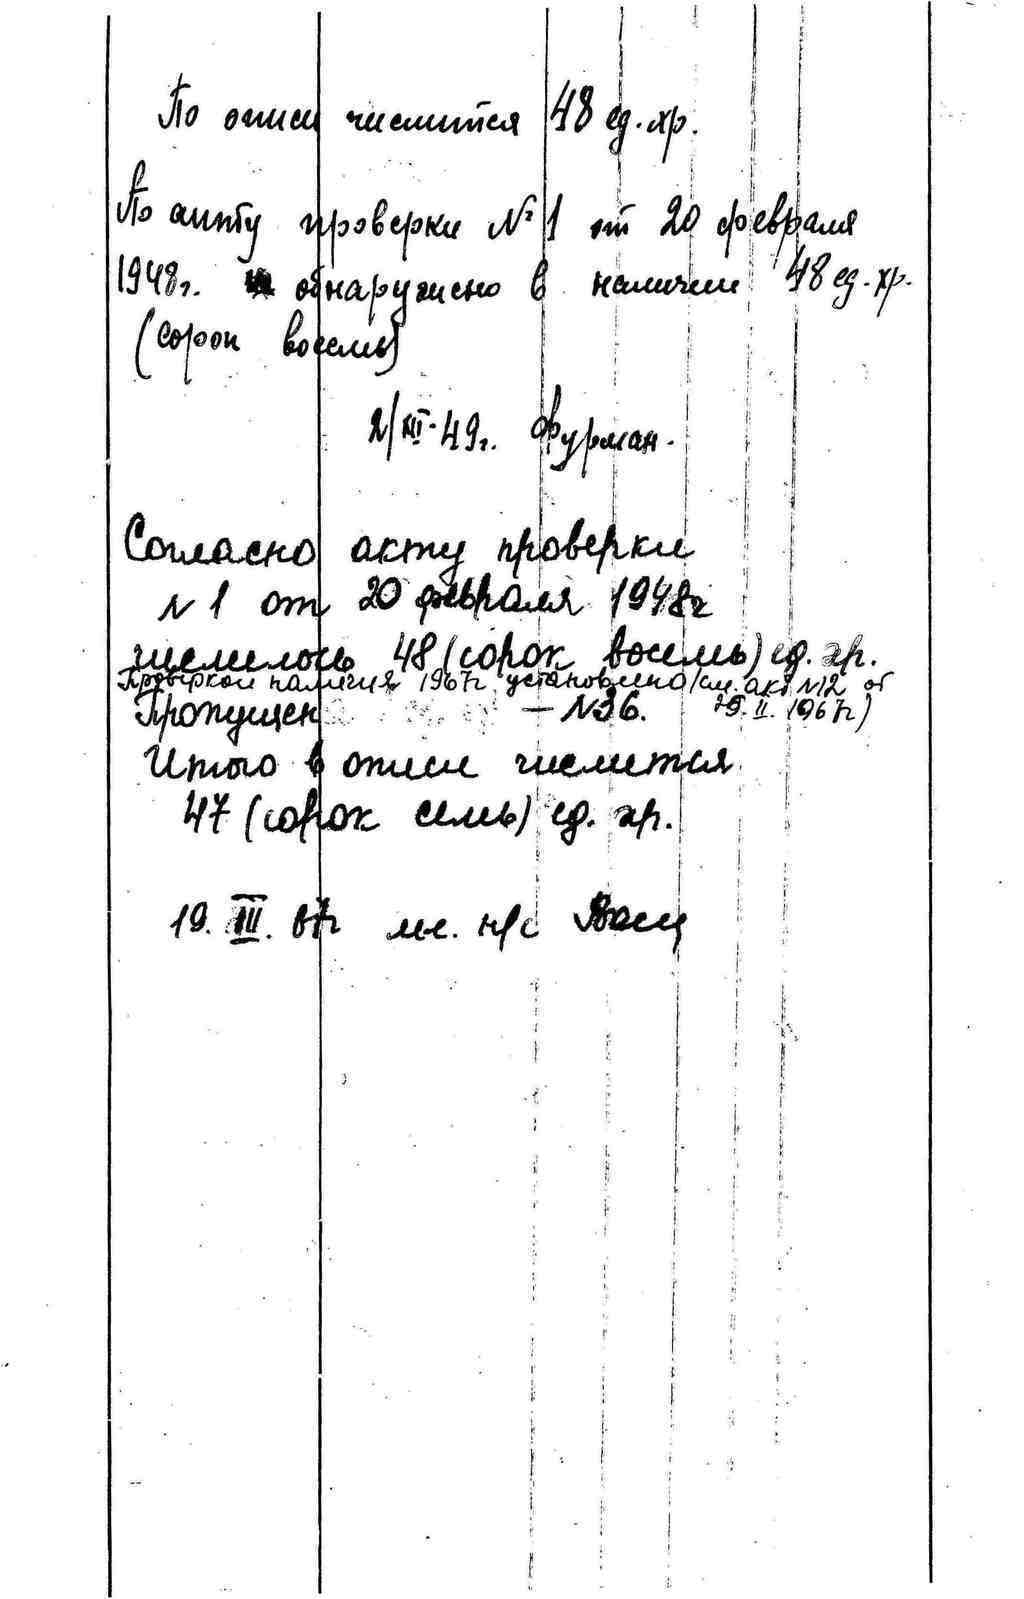 По описи числится 48 ед. хр.
По акту проверки № 1 от 20 февраля
1948г. обнаружено в наличии 48 ед. хр.
(сорок восемь)
2/III-49г. Фурман.
Согласно акту проверки
N 1 от 20 февраля 1948г
числилось 48 (сорок восемь) ед. хр.
Проверкой наличия 1967г установлено (см. акт N12 от
Пропущен – N36. II. 1967г)
Итого в описи числится
47 (сорок семь) ед. хр.
19. III. 67г мл. н/с